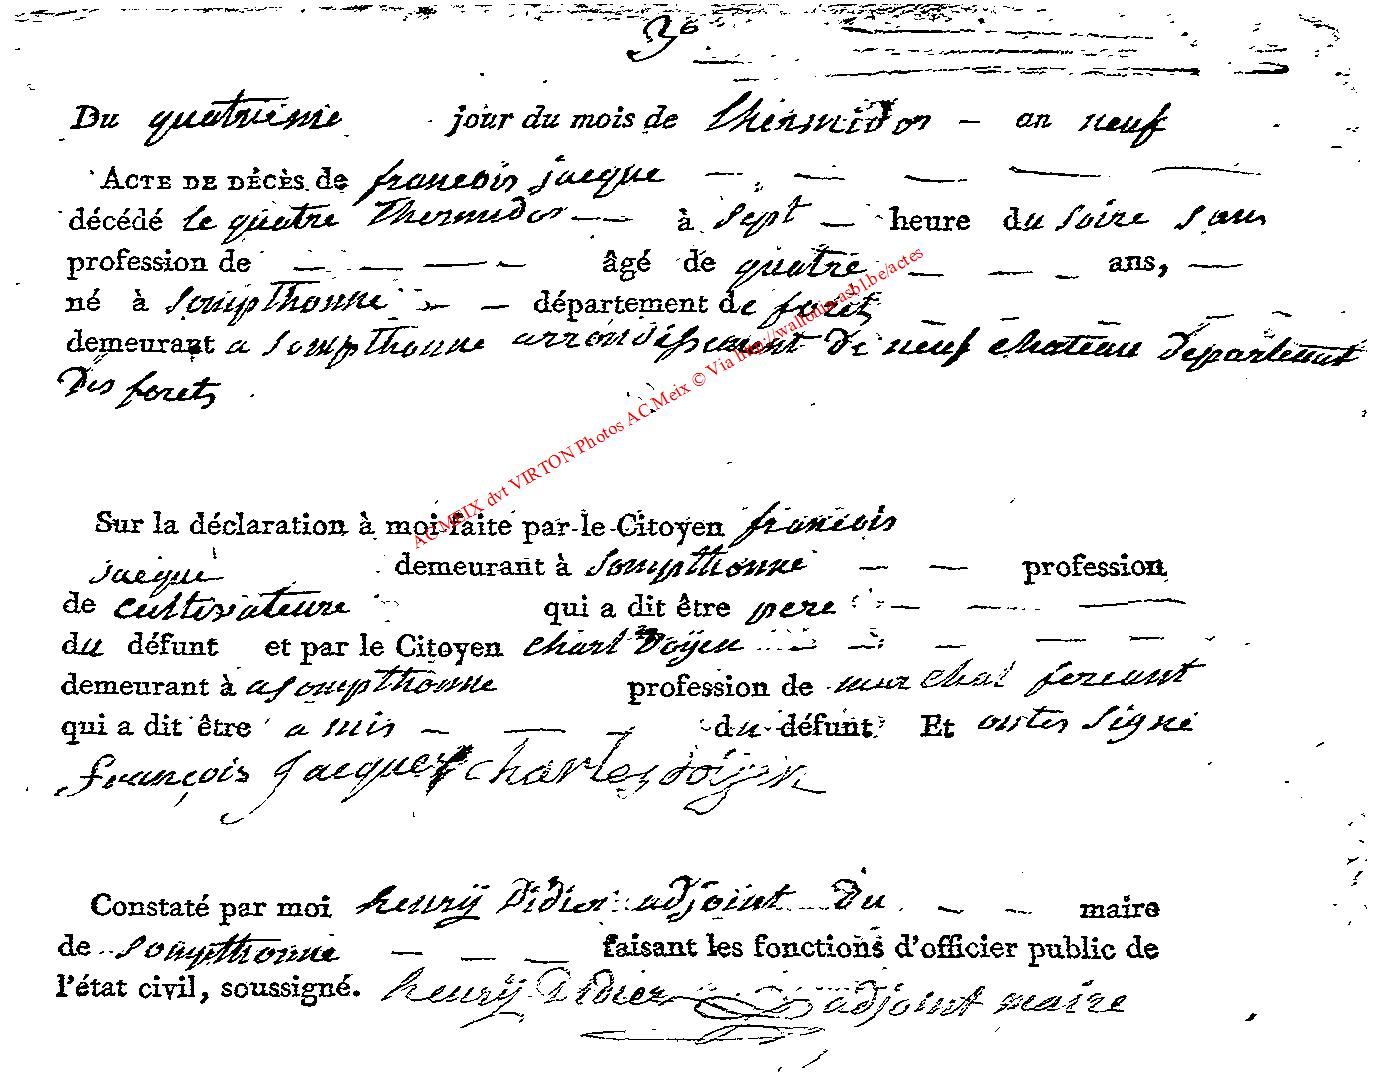 3e
Du quatrieme jour du mois de thermidor - an neuf
ACTE DE DÉCÈS de francois jacque
décédé le quatre Thermidor à sept heure du soire sans
profession de âgé de quatre ans,
né à sompthonne département de foret
demeurant a sompthonne arrondissement de neuf chateau departement
des forets
Sur la déclaration à moi faite par le Citoyen francois
jacque demeurant à sompthonne profession
de cultivateure qui a dit être pere
du défunt et par le Citoyen charl doyen
demeurant à a sompthonne profession de marchal fereant
qui a dit être a mis du défunt Et ontes signé
françois jacque charles doijen
Constaté par moi henrÿ Didier adjoint du maire
de sompthonne faisant les fonctions d'officier public de
l'état civil, soussigné. henrÿ Didier adjoint maire
AC MEIX dvt VIRTON Photos AC.Meix © Via http://wallonia-asbl.be/actes